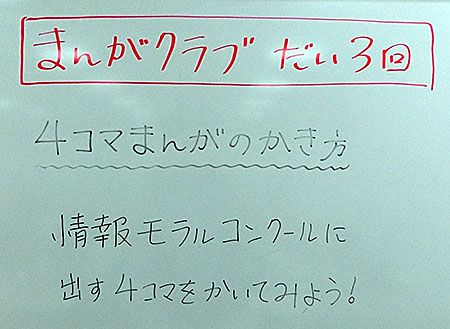 まんがクラブ だい3回
4コマまんがのかき方
情報モラルコンクールに
出す4コマをかいてみよう!